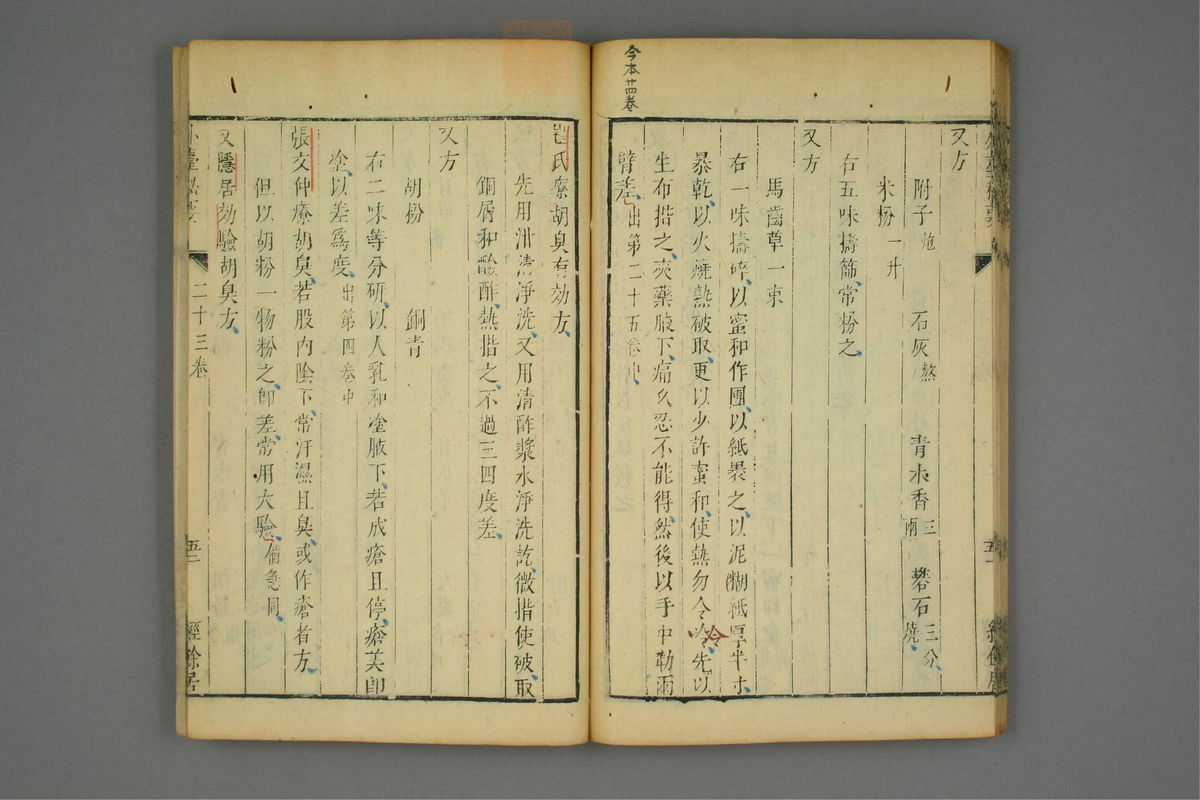 今本廿四卷
又方
附子炮 石灰熬 青木香三兩 礬石三分燒
米粉一升
右五味擣篩常粉之
又方
馬齒草一束
右一味擣碎以蜜和作團以紙裹之以泥糊紙厚半寸
暴乾以火燒熟破取更以少許蜜和使熱勿令冷先以
冷
生布揩之夾藥腋下痛久忍不能得然後以手巾勒兩
臂差出第二十五卷中
崔氏療胡臭有効方
先用泔清淨洗又用清酢漿水淨洗訖微揩使破取
銅屑和酢熱揩之不過三四度差
又方
胡粉 銅青
右二味等分研以人乳和塗腋下若成瘡且停瘡差即
塗以差爲度出第四卷中
張文仲療胡臭若股內陰下常汗濕且臭或作瘡者方
但以胡粉一物粉之即差常用大驗備急同
又隱居効驗胡臭方
二十三卷
五二
經餘居